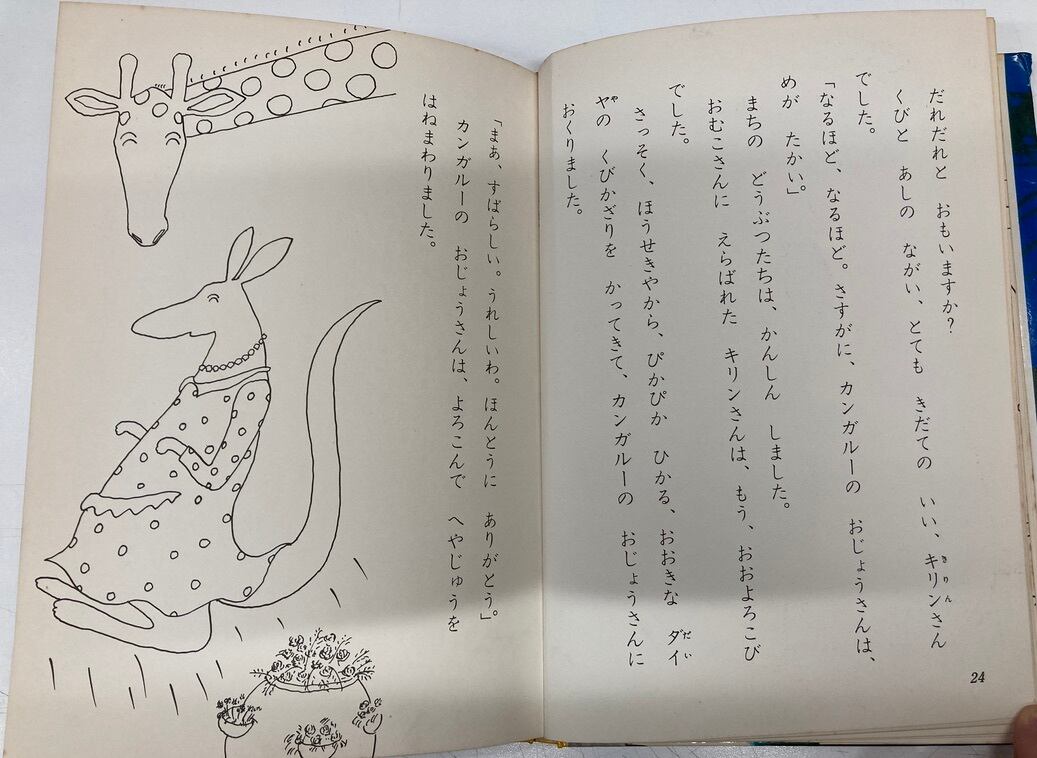 だれだれと　おもいますか？
くびと　あしの　ながい、とても　きだての　いい、キリンさん
きりん
でした。
「なるほど、なるほど。さすがに、カンガルーの　おじょうさんは、
めが　たかい」
まちの　どうぶつたちは、かんしん　しました。
おむこさんに　えらばれた　キリンさんは、もう、おおよろこび
でした。
さっそく、ほうせきやから、ぴかぴか　ひかる、おおきな　ダイ
だい
ヤの　くびかざりを　かってきて、カンガルーの　おじょうさんに
や
おくりました。
24
「まぁ、すばらしい。うれしいわ。ほんとうに　ありがとう。」
カンガルーの　おじょうさんは、よろこんで　へやじゅうを
はねまわりました。